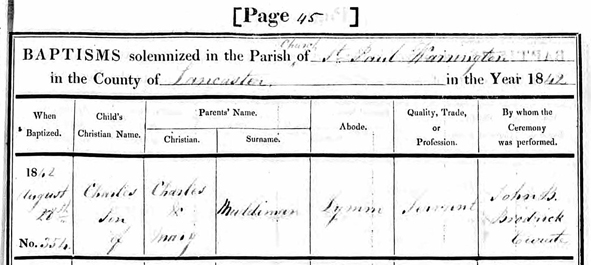 [Page 45 ]
BAPTISMS solemnized in the Parish Church of St. Paul Warrington
in the County of Lancaster. in the Year 1842
When Baptized.
Child's Christian Name.
Parents' Name.
Christian.
Surname.
Abode.
Quality, Trade, or Profession.
By whom the Ceremony was performed.
1842
August
28th
No. 354.
Charles
Son
of
Charles
&
Mary
Muddiman
Lymm
Servant
John B.
Brodrick
Curate